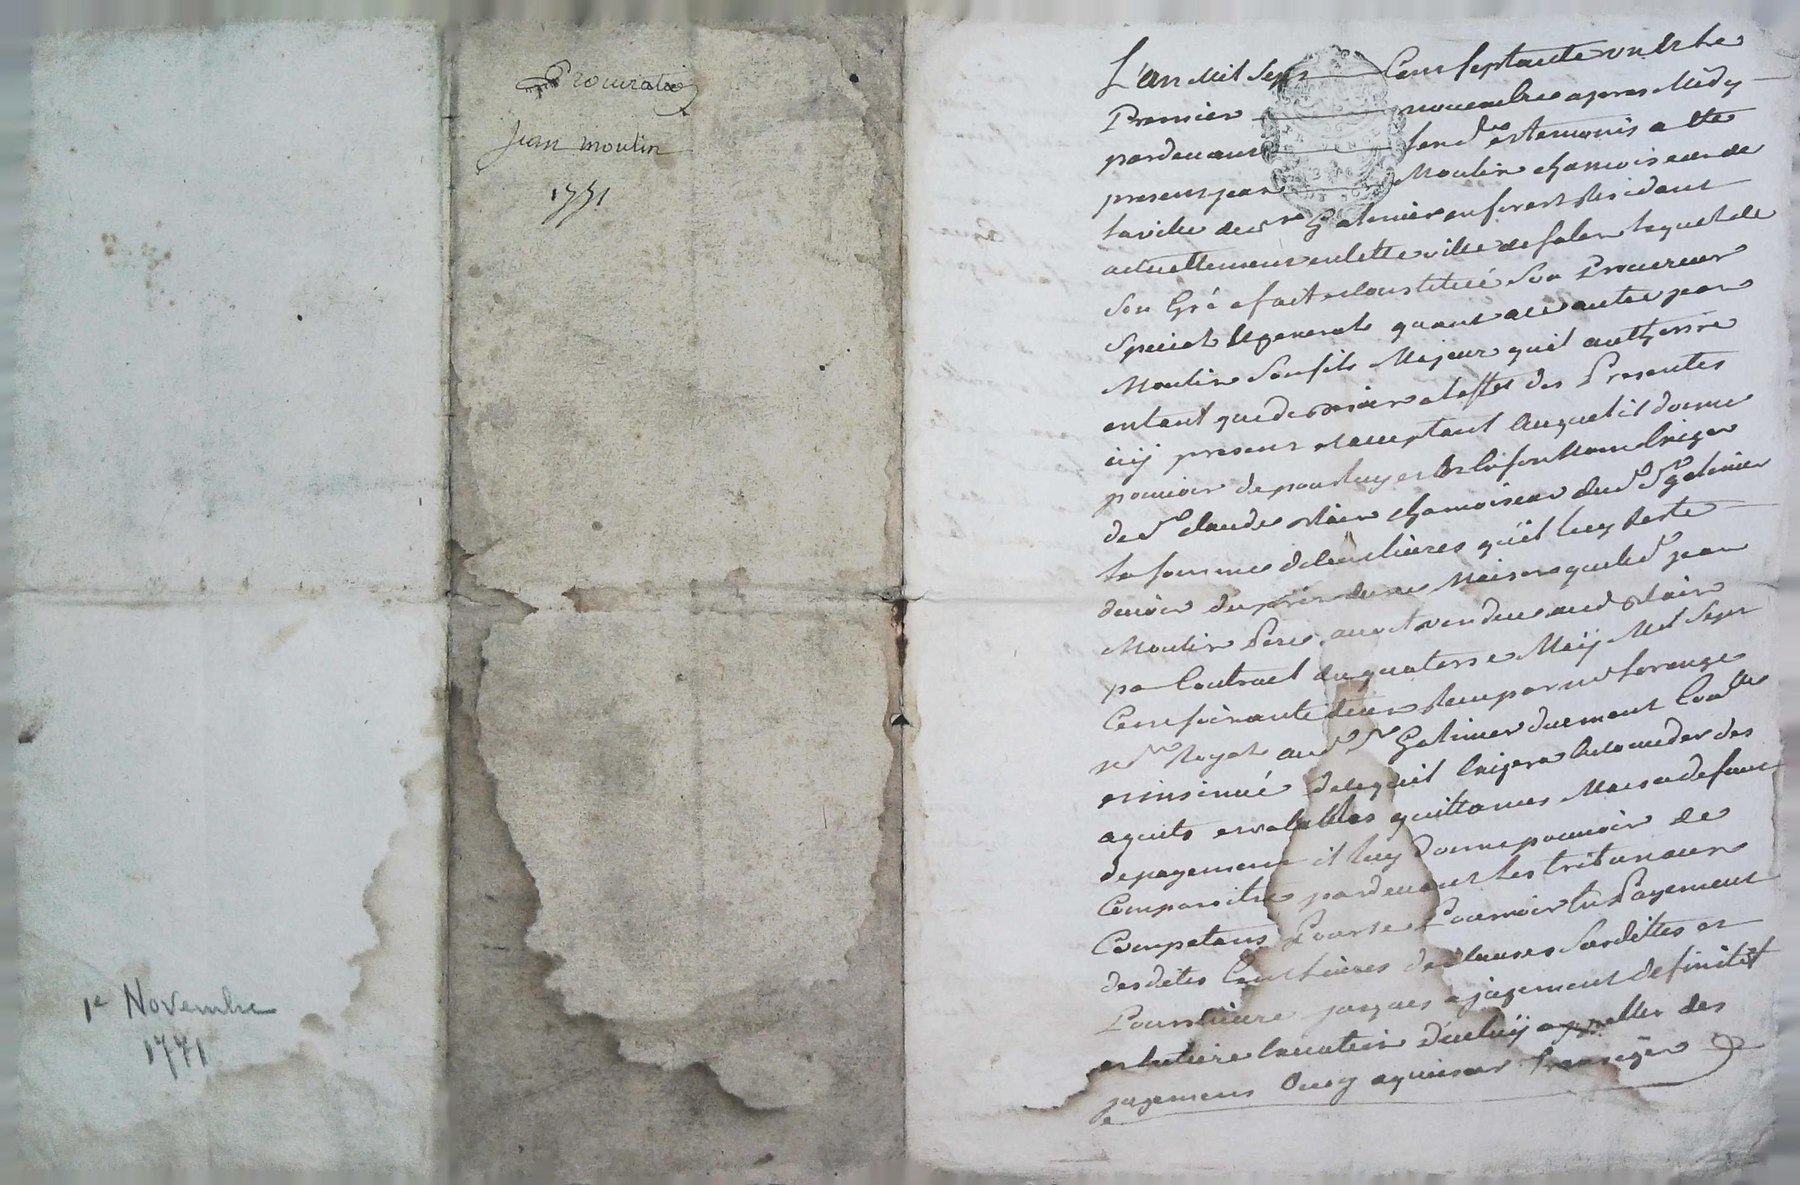 Procuration
Jean moulin
1771
1e Novembre
1771
L'an Mil Sept Cent septante un & le
Premier novembre apres Midy
pardevant temoins
present jean Moulin chamoiseur de
la ville de st Galmier en forest Residant
actuellement en cette ville de salon lequel de
Son Gré a fait & Constitué Son Procureur
Special & general quant a ce autre jean
Moulin Son fils Majeur qu'il authorise
en tant que de a leffet des Presentes
icy present et acceptant Auquel il donne
pouvoir de pour luy et En son Nom Exiger
de Sr claude chamoiseur dud St galmier
la somme de Cent livres qu'il luy Reste
devoir du prix dune Maison que led jean
Moulin Pere avoit vendue aud
par Contract du quatorse May Mil Sept
Cent soixante deux Reçu par
Nore Royal aud St Galmier duement
et insinué de ce qu'il Exigera En conceder des
aquits et valables quittances Mais a defaut
de payement il luy Donne pouvoir de
Comparoitre pardevant les tribunaux
Competans Pour se Pourvoir En Payement
desdites Cent livres des Causes Susdittes et
Poursuivre jusques a jugement definitif
et Entiere Execution D'iceluy appeller des
jugemens Ou y aquiescer